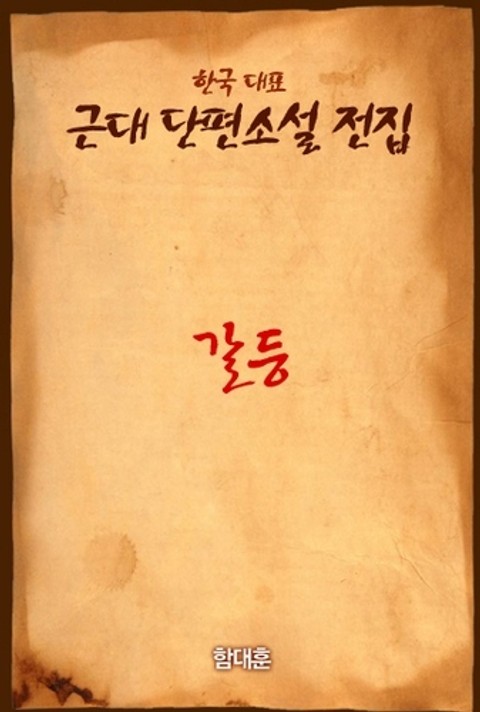 한국 대표
근대 단편소설 전집
갈등
함대훈